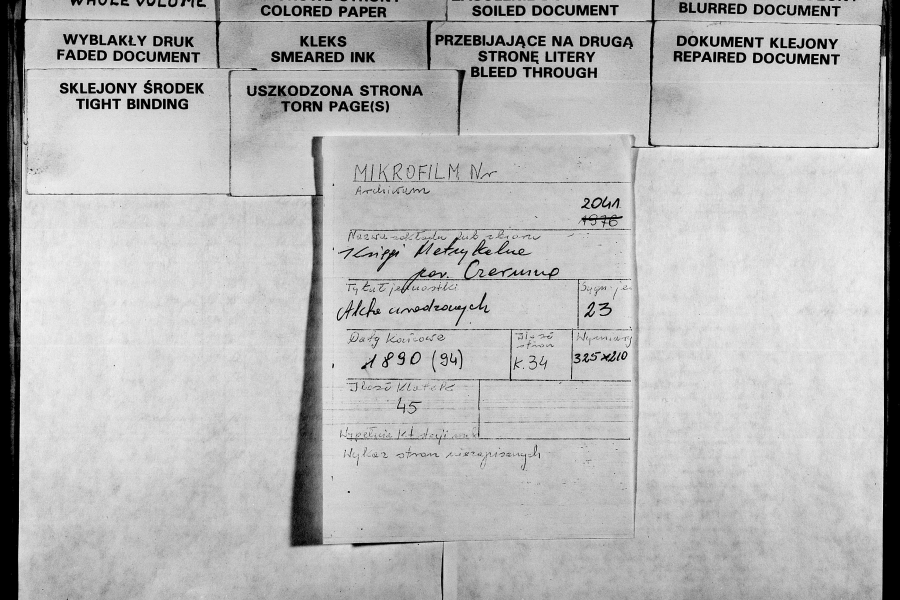 WHOLE VOLUME
COLORED PAPER
SOILED DOCUMENT
BLURRED DOCUMENT
WYBLAKŁY DRUK
FADED DOCUMENT
KLEKS
SMEARED INK
PRZEBIJAJĄCE NA DRUGĄ
STRONĘ LITERY
BLEED THROUGH
DOKUMENT KLEJONY
REPAIRED DOCUMENT
SKLEJONY ŚRODEK
TIGHT BINDING
USZKODZONA STRONA
TORN PAGE(S)
MIKROFILM Nr
Archiwum
2041
1976
Nazwa zespołu lub zbioru
Księgi Metrykalne
par. Czermno
Tytuł jednostki
Akta urodzonych
23
Daty końcowe
1890 (94)
Ilość
stron
K. 34
Wymiary
325x210
Ilość klatek
45
Wykaz stron niezapisanych